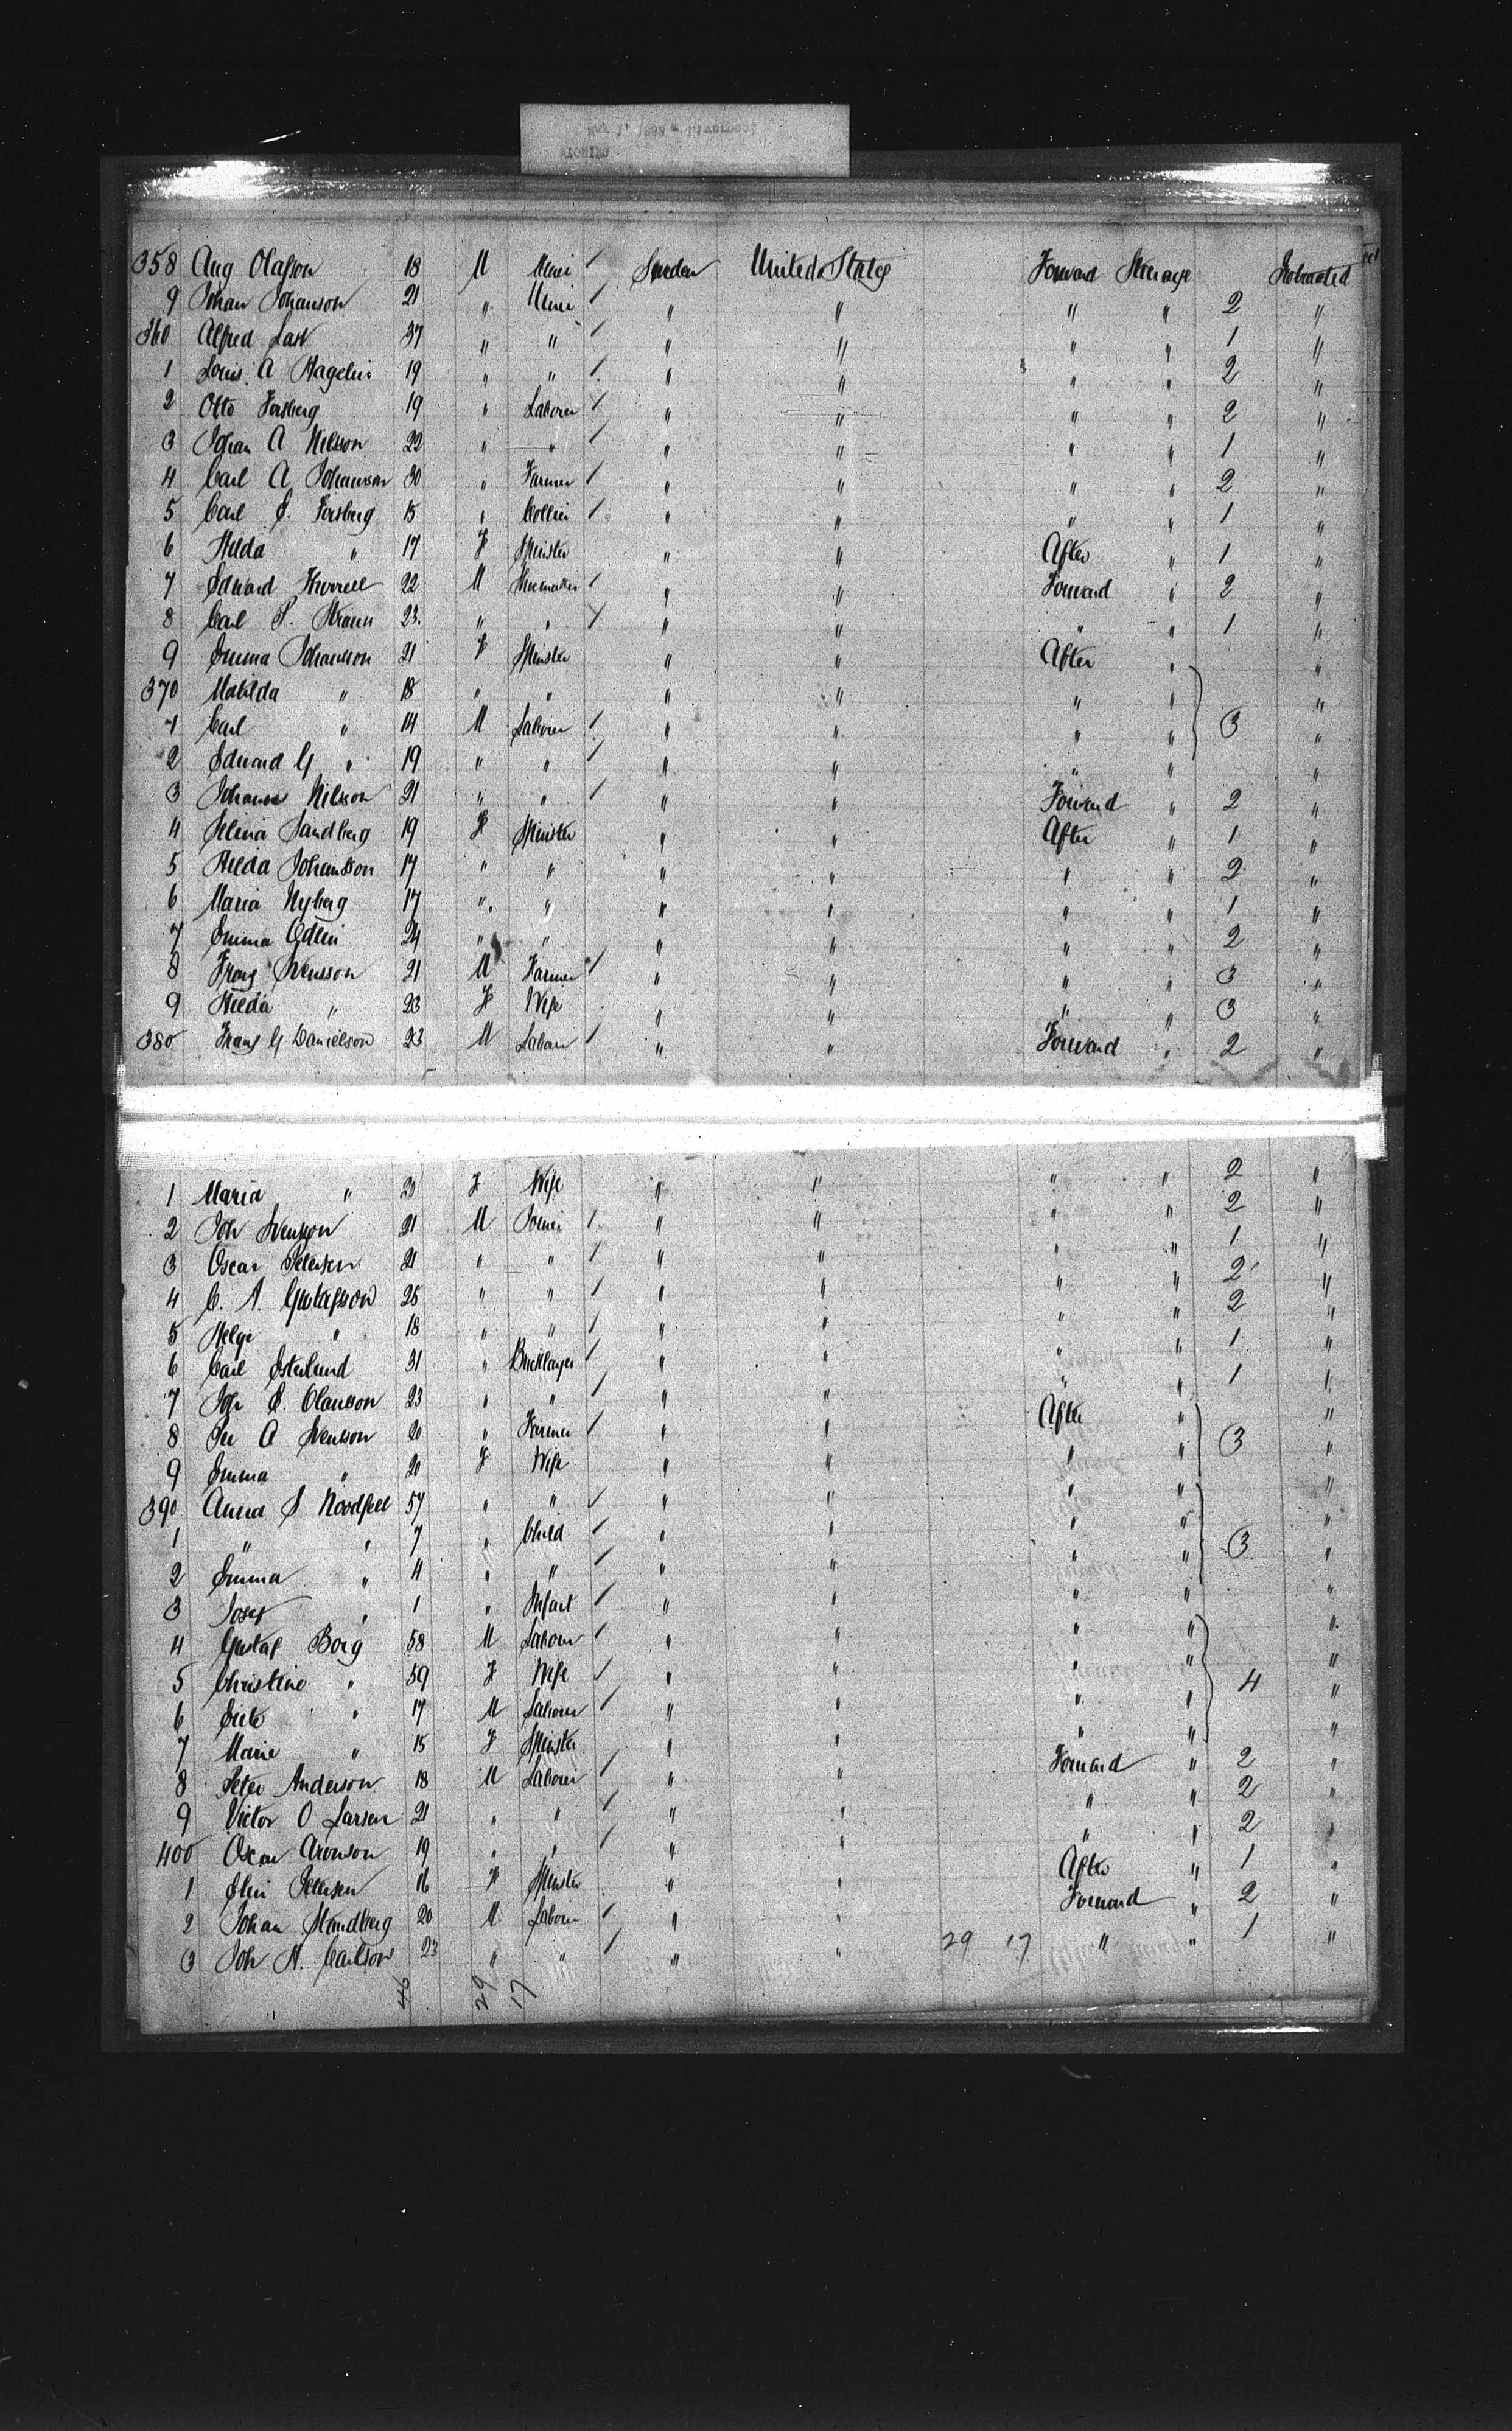 May 1, 1892 - Liverpool
WYOMING
358 Aug Olafson 18 M Miner / Sweden United States Forward Steerage Protracted
9 Johan Johanson 21 " Miner / " " " " 2 "
360 Alfred Last 37 " " / " " " " 1 "
1 Louis A Hagelin 19 " " / " " " " 2 "
2 Otto Forsberg 19 " Laborer / " " " " 2 "
3 Johan A Nilsson 22 " " / " " " " 1 "
4 Carl A Johanson 30 " Farmer / " " " " 2 "
5 Carl J. Forsberg 15 " Collier / " " " " 1 "
6 Hilda " 17 F Spinster " " After " 1 "
7 Edward 22 M Shoemaker / " " Forward " 2 "
8 Carl P. 23 " " / " " " " 1 "
9 Emma Johansson 21 F Spinster " " After " "
370 Matilda " 18 " " " " " " "
1 Carl " 14 M Laborer / " " " " 3 "
2 Edward G " 19 " " / " " " " "
3 Johannes Nilsson 21 " " / " " Forward " 2 "
4 Selina Sandberg 19 F Spinster " " After " 1 "
5 Hilda Johansson 17 " " " " " " 2 "
6 Maria Nyberg 17 " " " " " " 1 "
7 Emma Edlin 24 " " " " " " 2 "
8 Frans Svensson 21 M Farmer / " " " " 3 "
9 Hilda " 23 F Wife " " " " 3 "
380 Frans G Danielson 23 M Labour / " " Forward " 2 "
1 Maria " 20 F Wife " " " " 2 "
2 Joh Svensson 21 M Joiner / " " " " 2 "
3 Oscar Petersen 21 " " / " " " " 1 "
4 C. A. Gustafsson 25 " " / " " " " 2 "
5 Helge " 18 " " / " " " " 2 "
6 Carl Osterlund 31 " Bricklayer / " " " " 1 "
7 Joh E. Olausson 23 " " / " " " " 1 "
8 Per A Svensson 20 " Farmer / " " After " 3 "
9 Emma " 20 F Wife " " " " "
390 Anna S 57 " " / " " " " "
1 " " 7 " Child / " " " " 3 "
2 Emma " 4 " " / " " " " "
3 Josef " 1 " Infant / " " " " "
4 Gustaf Borg 58 M Labour / " " " " "
5 Christine " 59 F Wife / " " " " 4 "
6 " 17 M Laborer / " " " " "
7 Marie " 15 F Spinster " " " " "
8 Peter Anderson 18 M Laborer / " " Forward " 2 "
9 Victor O Larsen 21 " " / " " " " 2 "
400 Oscar Aronson 19 " " / " " " " 2 "
1 Elin Petersen 16 F Spinster " " After " 1 "
2 Johan Strandberg 20 M Labour / " " Forward " 2 "
3 Joh A. Carlson 23 " " / " " 29 17 " " 1 "
46 29 17